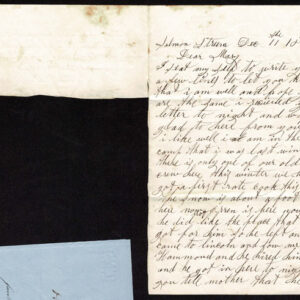 Salmon Stream Dec 11th 18
Dear Mary
I seat my self to write y
a few lines to let you k
that i am well and hope
are the same i received
letter to night and w
glad to here from you
i like well i at are in th
camp that i was last win
there is only one of our old
crew here this winter we h
got a first rate cook thi
snow is about a foot
here now is here
he did like the place that
got for him so he left an
came to lincoln and
Hammond and he hired him
and he got in here to nigh
you tell mother that she